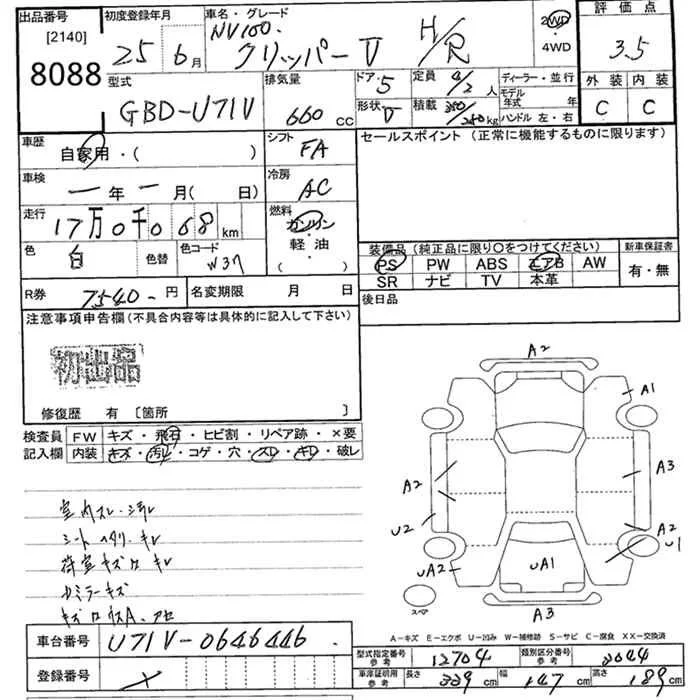 出品番号
[2140]
8088
初度登録年月
25年 6月
車名・グレード
NV100クリッパーV H/R
2WD
・4WD
評価点
3.5
外装 内装
C C
型式
GBD-U71V
排気量
660 CC
ドア・ 5
形状・ V
定員 4/2 人
積載 350/250 kg
ディーラー・並行
モデル年式 年
ハンドル 左・右
車歴
自家用・( )
シフト
FA
セールスポイント (正常に機能するものに限ります)
車検
一年一月( 日)
冷房
AC
走行
17万0千068km
燃料
ガソリン
軽・油
( )
色
白
色替
色コード
W37
装備品 (純正品に限り〇をつけてください)
PS PW ABS エアB AW
SR ナビ TV 本革
新車保証書
有・無
R券 7540- 円
名変期限 月 日
後日品
注意事項申告欄 (不具合内容等は具体的に記入して下さい)
初出品
修復歴 有 〔箇所 〕
検査員
記入欄
FW キズ・飛石・ヒビ割・リペア跡・×要
内装 キズ・汚レ・コゲ・穴・スレ・キレ・破レ
室内スレ・シミ
シート ヘタリ・キレ
荷室キズ
ミラーキズ
A2
A1
A2
A3
U2
A2
U1
UA2
UA1
スペア
A3
A-キズ E-エクボ U-凹み W-補修跡 S-サビ C-腐食 XX-交換済
車台番号 U71V-0646446
登録番号
型式指定番号
参考
12704
類別区分番号
参考
2044
車庫証明用
参考
長さ 339 cm 幅 147 cm 高さ 189 cm